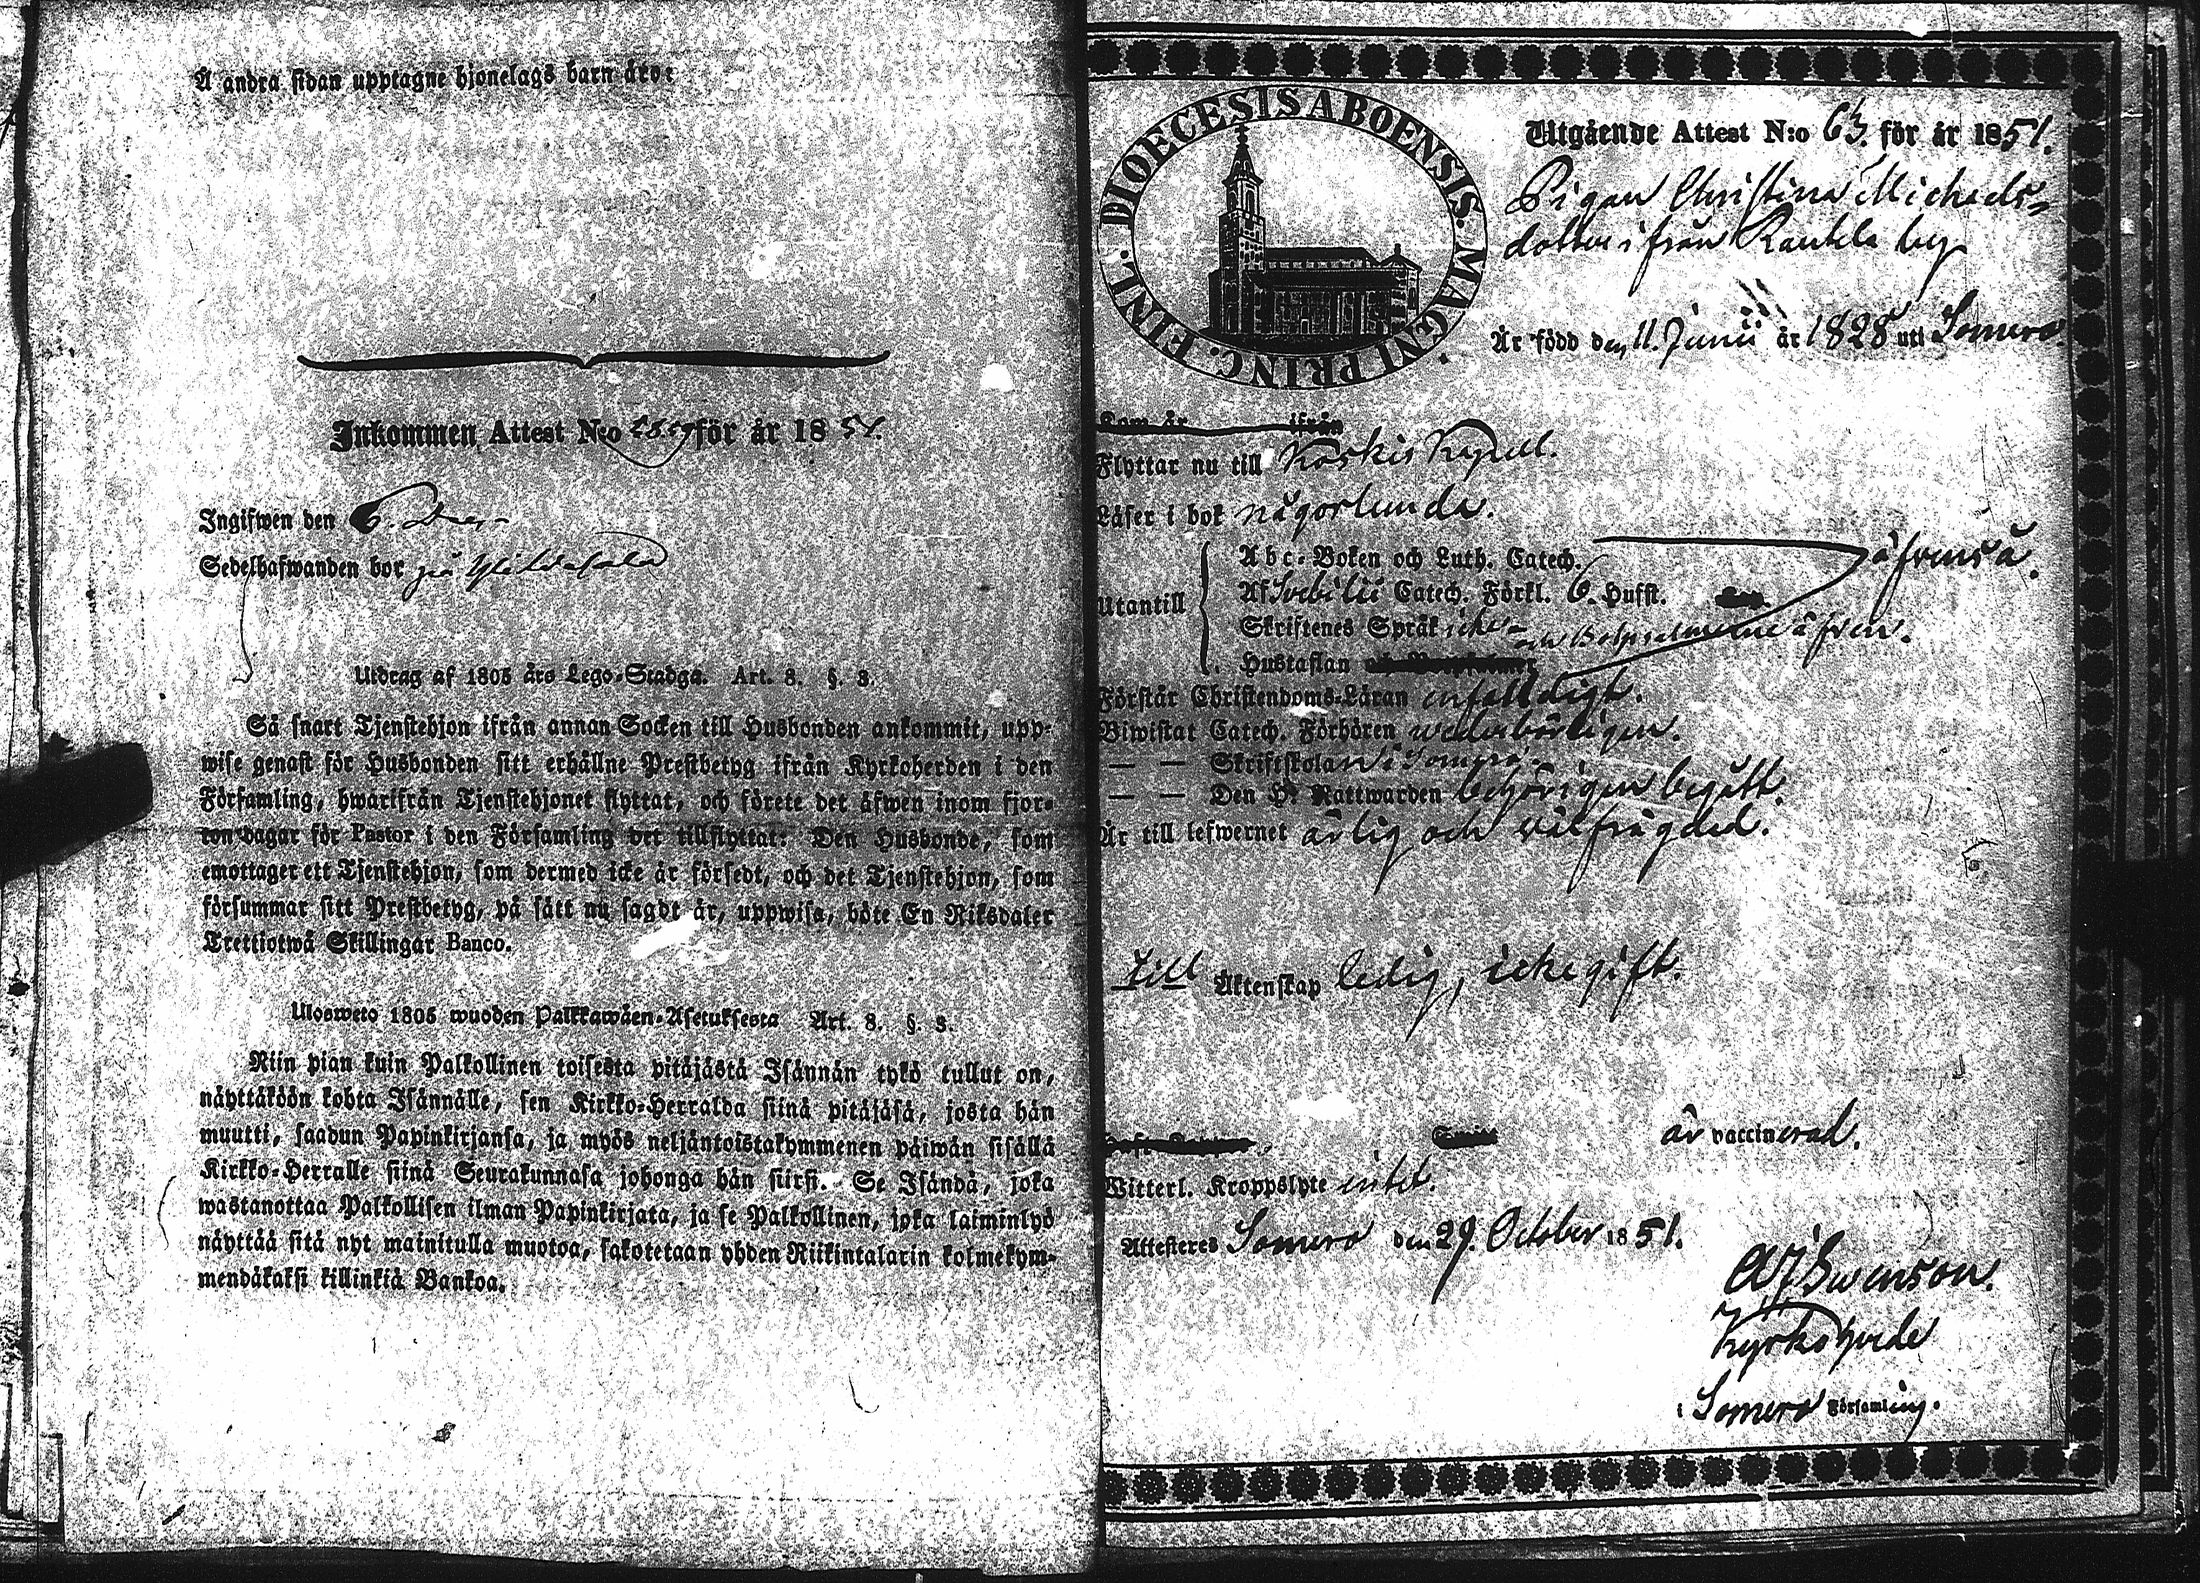 Å andra sidan upptagne hjonelags barn äro:
Inkommen Attest N:o för år 1851.
Ingifwen den 6.
Sedelhafwanden bor på
Utdrag af 1805 års Lego-Stadga. Art. 8. §. 3.
Så snart Tjenstehjon ifrån annan Socken till Husbonden ankommit, upp-
wise genast för Husbonden sitt erhållne Prestbetyg ifrån Kyrkoherden i den
Församling, hwarifrån Tjenstehjonet flyttat, och förete det äfwen inom fjor-
ton dagar för Pastor i den Församling det tillflyttat: Den Husbonde, som
emottager ett Tjenstehjon, som dermed icke är försedt, och det Tjenstehjon, som
försummar sitt Prestbetyg, på sätt nu sagdt är, uppwisa, böte En Riksdaler
Trettiotwå Skillingar Banco.
Ulosweto 1805 wuoden Palkkawäen-Asetuksesta Art. 8. §. 3.
Niin pian kuin Palkollinen toisesta pitäjästä Isännän tykö tullut on,
näyttäköön kohta Isännälle, sen Kirkko-Herralda siinä pitäjäsä, josta hän
muutti, saadun Papinkirjansa, ja myös neljäntoistakymmenen päiwän sisällä
Kirkko-Herralle siinä Seurakunnasa johonga hän siirsi. Se Isändä, joka
wastanottaa Palkollisen ilman Papinkirjata, ja se Palkollinen, joka laiminlyö
näyttää sitä nyt mainitulla muotoa, sakotetaan yhden Riikintalarin kolmekym-
mendäkaksi killinkiä Bankoa.
DIOECESIS ABOENSIS. MAGNI PRINC. FINL.
Utgående Attest N:o 63. för år 1851.
Pigan Christina Michaels-
dotter ifrån Rautela by
Är född den 11. Junii år 1828 uti Somero.
Kom år ifrån
Flyttar nu till Koskis Kapell.
Läser i bok någorlunda.
Abc-Boken och Luth. Catech. äfvenså.
Utantill
Af Svebilii Catech. Förkl. 6. Hufst.
Skriftenes Språk icke Botpsalmerne äfven.
Hustaflan
Förstår Christendoms-Läran enfaldigt.
Biwistat Catech. Förhören wederbörligen.
— — Skriftskolan i Somero.
— — Den H. Nattwarden behörigen begått.
Är till lefwernet ärlig och wälfrägdad.
Till Äktenskap ledig, icke gift.
är vaccinerad.
Witterl. Kroppslyte intet.
Attesteres Somero den 29. October 1851.
A J Swenson.
Kyrkoherde
i Somero Församling.